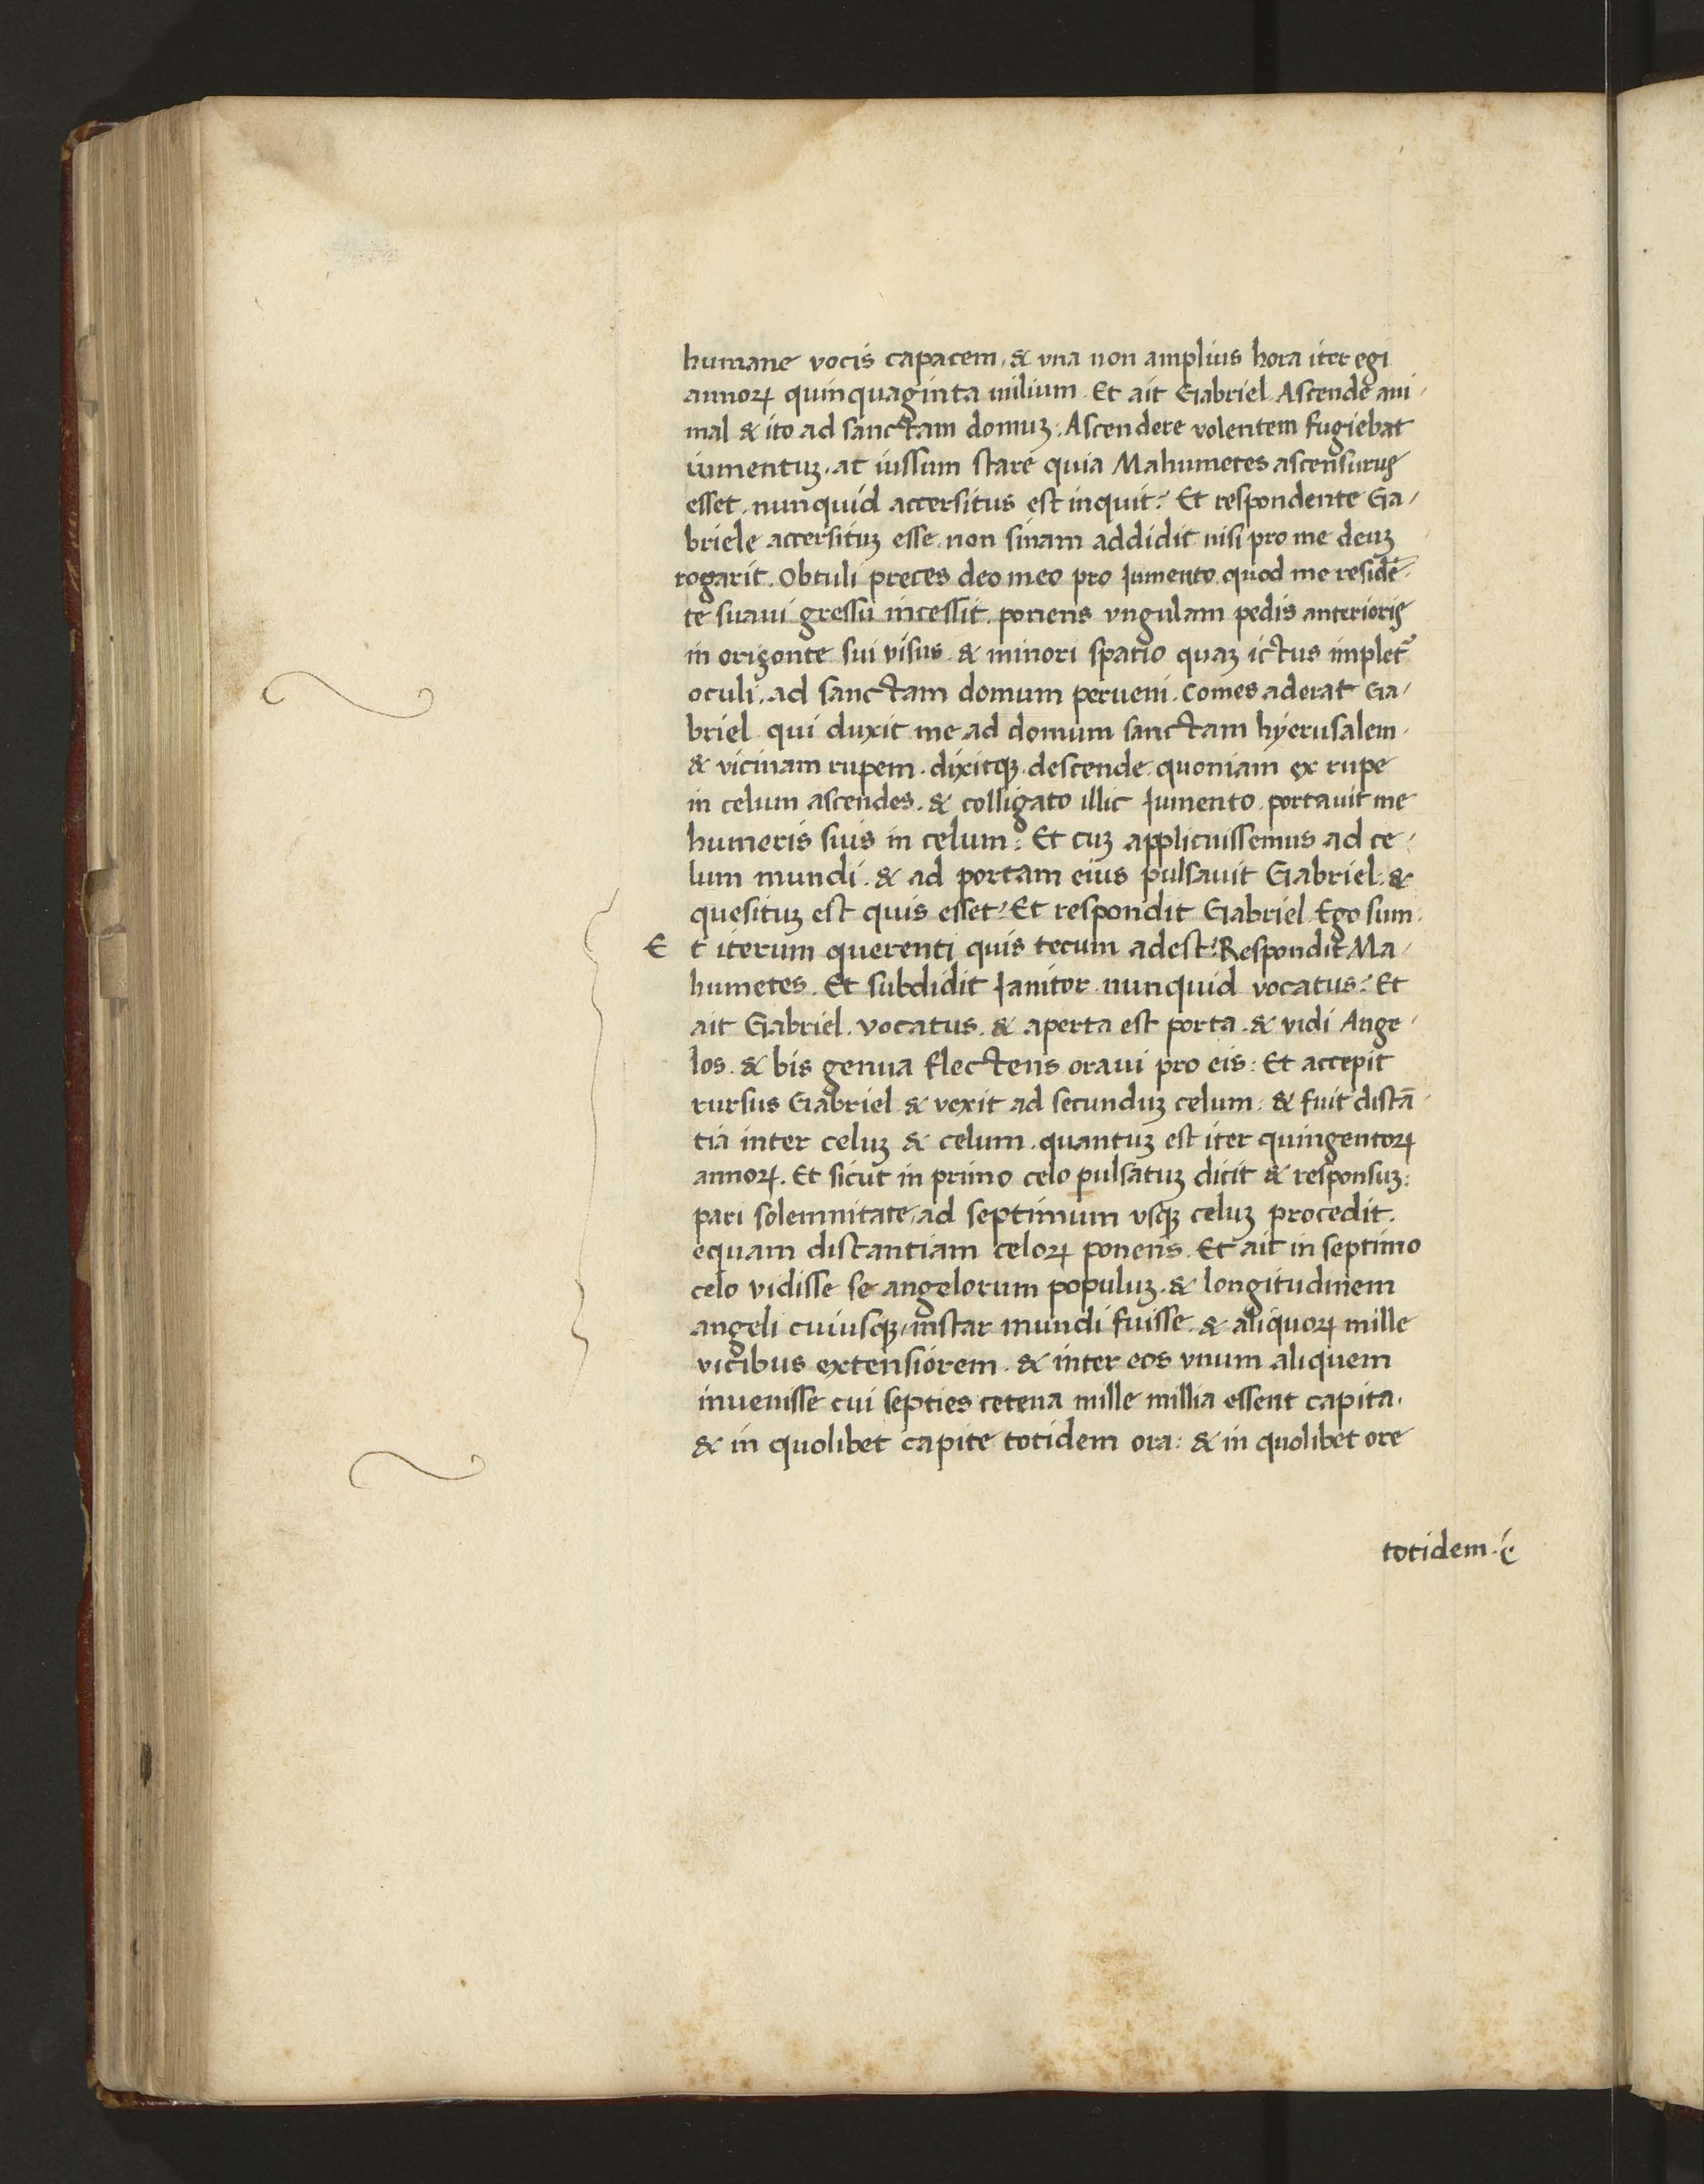 humane vocis capacem, & vna non amplius hora iter egi
annoꝝ quinquaginta milium. Et ait Gabriel. Ascende ani-
mal & ito ad sanctam domuꝫ: Ascendere volentem fugiebat
iumentuꝫ, at iussum stare quia Mahumetes ascensurus
esset, nunquid accersitus est inquit? Et respondente Ga-
briele accersituꝫ esse. non sinam addidit nisi pro me deuꝫ
rogarit. Obtuli preces deo meo pro Jumento quod me residē-
te suaui gressu incessit. ponens vngulam pedis anterioris
in orizonte sui visus. & minori spatio quaꝫ ictus impletꝰ
oculi, ad sanctam domum perueni. Comes aderat Ga-
briel. qui duxit me ad domum sanctam hyerusalem.
& vicinam rupem. dixitqꝫ. descende. quoniam ex rupe
in celum ascendes. & colligato illic Jumento. portauit me
humeris suis in celum: Et cuꝫ applicuissemus ad ce-
lum mundi. & ad portam eius pulsauit Gabriel. &
quesituꝫ est quis esset? Et respondit Gabriel. Ego sum.
E t iterum querenti quis tecum adest? Respondit Ma-
humetes. Et subdidit Janitor nunquid vocatus? Et
ait Gabriel. vocatus. & aperta est porta. & vidi Ange-
los. & bis genua flectens oraui pro eis: Et accepit
rursus Gabriel & vexit ad secunduꝫ celum: & fuit distā-
tia inter celuꝫ & celum. quantuꝫ est iter quingentoꝝ
annoꝝ. Et sicut in primo celo pulsatuꝫ dicit & responsuꝫ:
pari solemnitate, ad septimum vsqꝫ celuꝫ procedit.
equam distantiam celoꝝ ponens. Et ait in septimo
celo vidisse se angelorum populuꝫ. & longitudinem
angeli cuiusqꝫ, instar mundi fuisse. & aliquoꝝ mille
vicibus extensiorem. & inter eos vnum aliquem
inuenisse cui septies cetena mille millia essent capita.
& in quolibet capite totidem ora: & in quolibet ore
totidem.